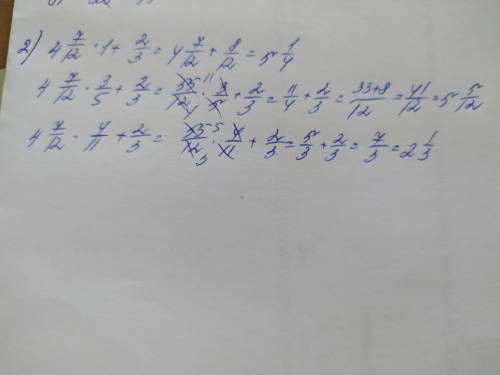 2) 4 7/12 · 1 + 2/3 = 4 7/12 + 8/12 = 5 1/4
4 7/12 · 3/5 + 2/3 = 55/12 · 3/5 + 2/3 = 11/4 + 2/3 = 33+8/12 = 41/12 = 5 5/12
4 7/12 · 4/11 + 2/3 = 55/12 · 4/11 + 2/3 = 5/3 + 2/3 = 7/3 = 2 1/3